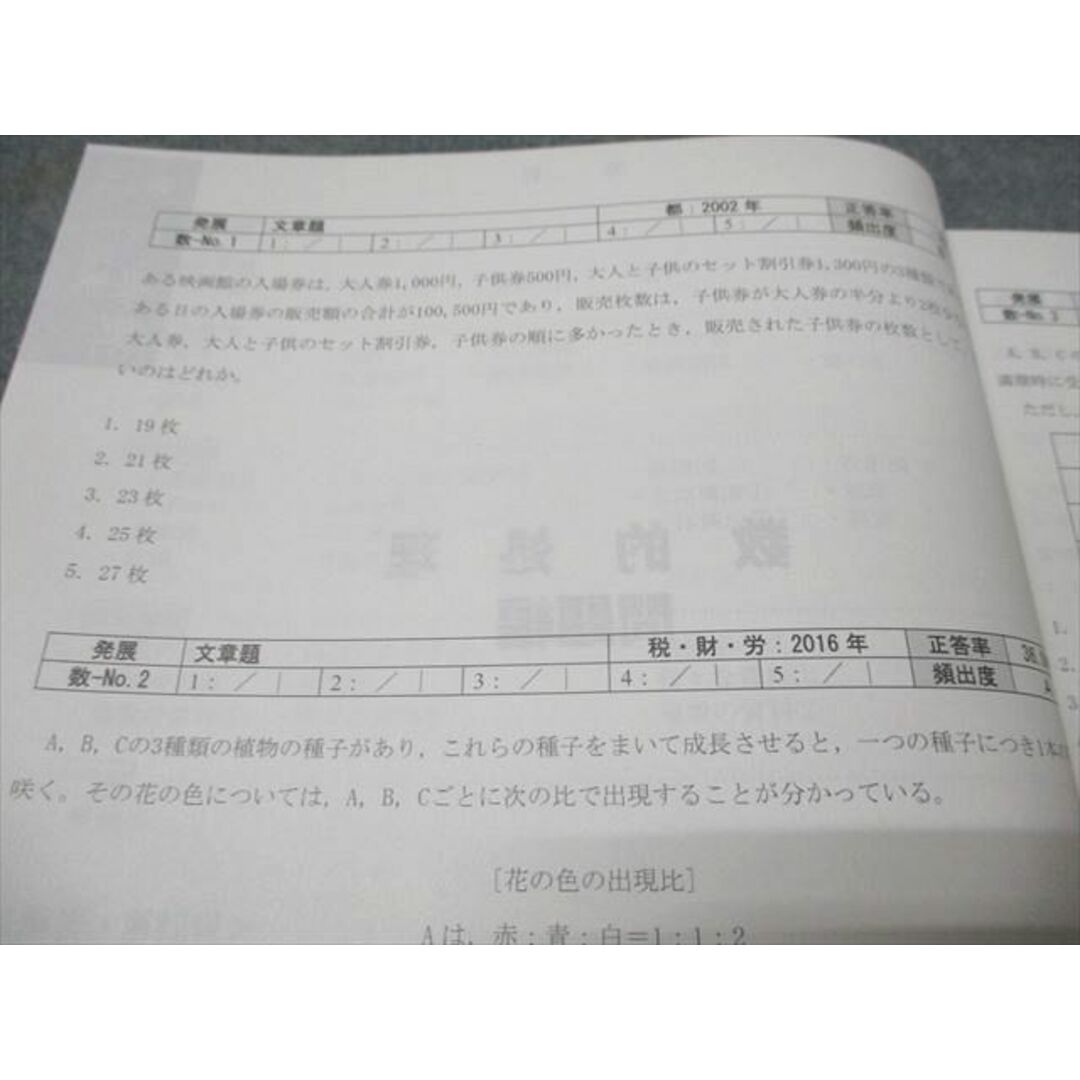 発展 文章題 都：2002年 正答率
数-No.1 1：／ 2：／ 3：／ 4：／ 5：／ 頻出度
ある映画館の入場券は，大人券1,000円，子供券500円，大人と子供のセット割引券1,300円の3種類
ある日の入場券の販売額の合計が100,500円であり，販売枚数は，子供券が大人券の半分より2枚
大人券，大人と子供のセット割引券，子供券の順に多かったとき，販売された子供券の枚数として
いのはどれか。
1．19枚
2．21枚
3．23枚
4．25枚
5．27枚
発展 文章題 税・財・労：2016年 正答率
数-No.2 1：／ 2：／ 3：／ 4：／ 5：／ 頻出度
A，B，Cの3種類の植物の種子があり，これらの種子をまいて成長させると，一つの種子につき1本
咲く。その花の色については，A，B，Cごとに次の比で出現することが分かっている。
［花の色の出現比］
Aは，赤：青：白＝1：1：2
発展
数-No.3
A，B，Cの
満潮時に受
ただし，
1．
2．
3